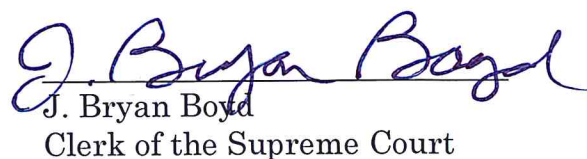 J. Bryan Boyd
J. Bryan Boyd
Clerk of the Supreme Court